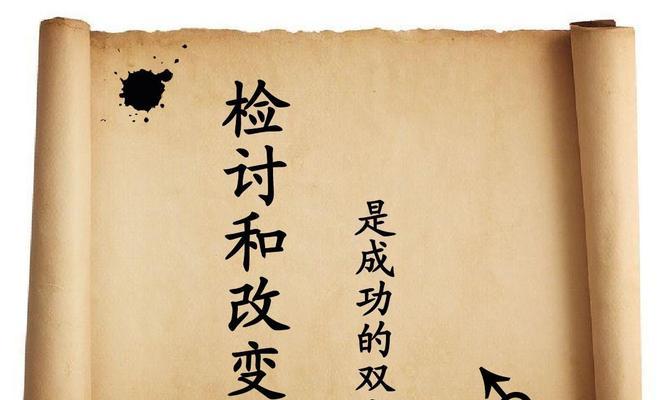 检讨和改变
是成功的双